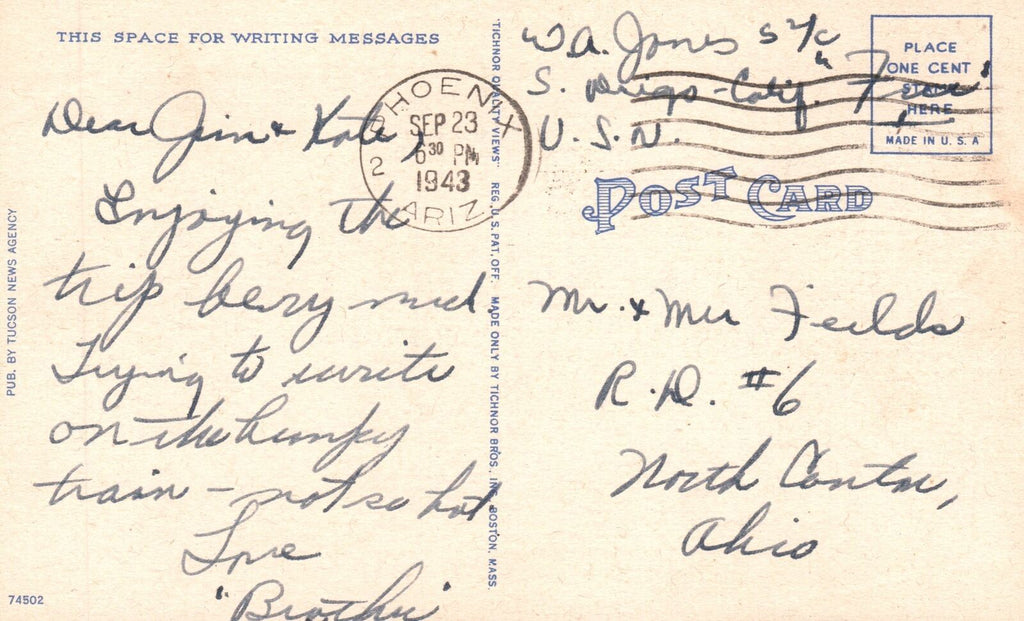 THIS SPACE FOR WRITING MESSAGES
Dear Jim & Kate,
Enjoying the
trip bery much
Trying to write
on the bumpy
train - not so hot.
Love
"Brother"
PUB. BY TUCSON NEWS AGENCY
74502
"TICHNOR QUALITY VIEWS" REG. U. S. PAT. OFF. MADE ONLY BY TICHNOR BROS., INC. BOSTON, MASS.
PHOENIX
SEP 23
6 30 PM
1943
2
ARIZ.
W. A. Jones S 2/c
S. Diego - Calif. "Free"
U. S. N.
PLACE
ONE CENT
STAMP
HERE
MADE IN U. S. A
POST CARD
Mr. & Mrs Feilds
R. D. #6
North Canton,
Ohio